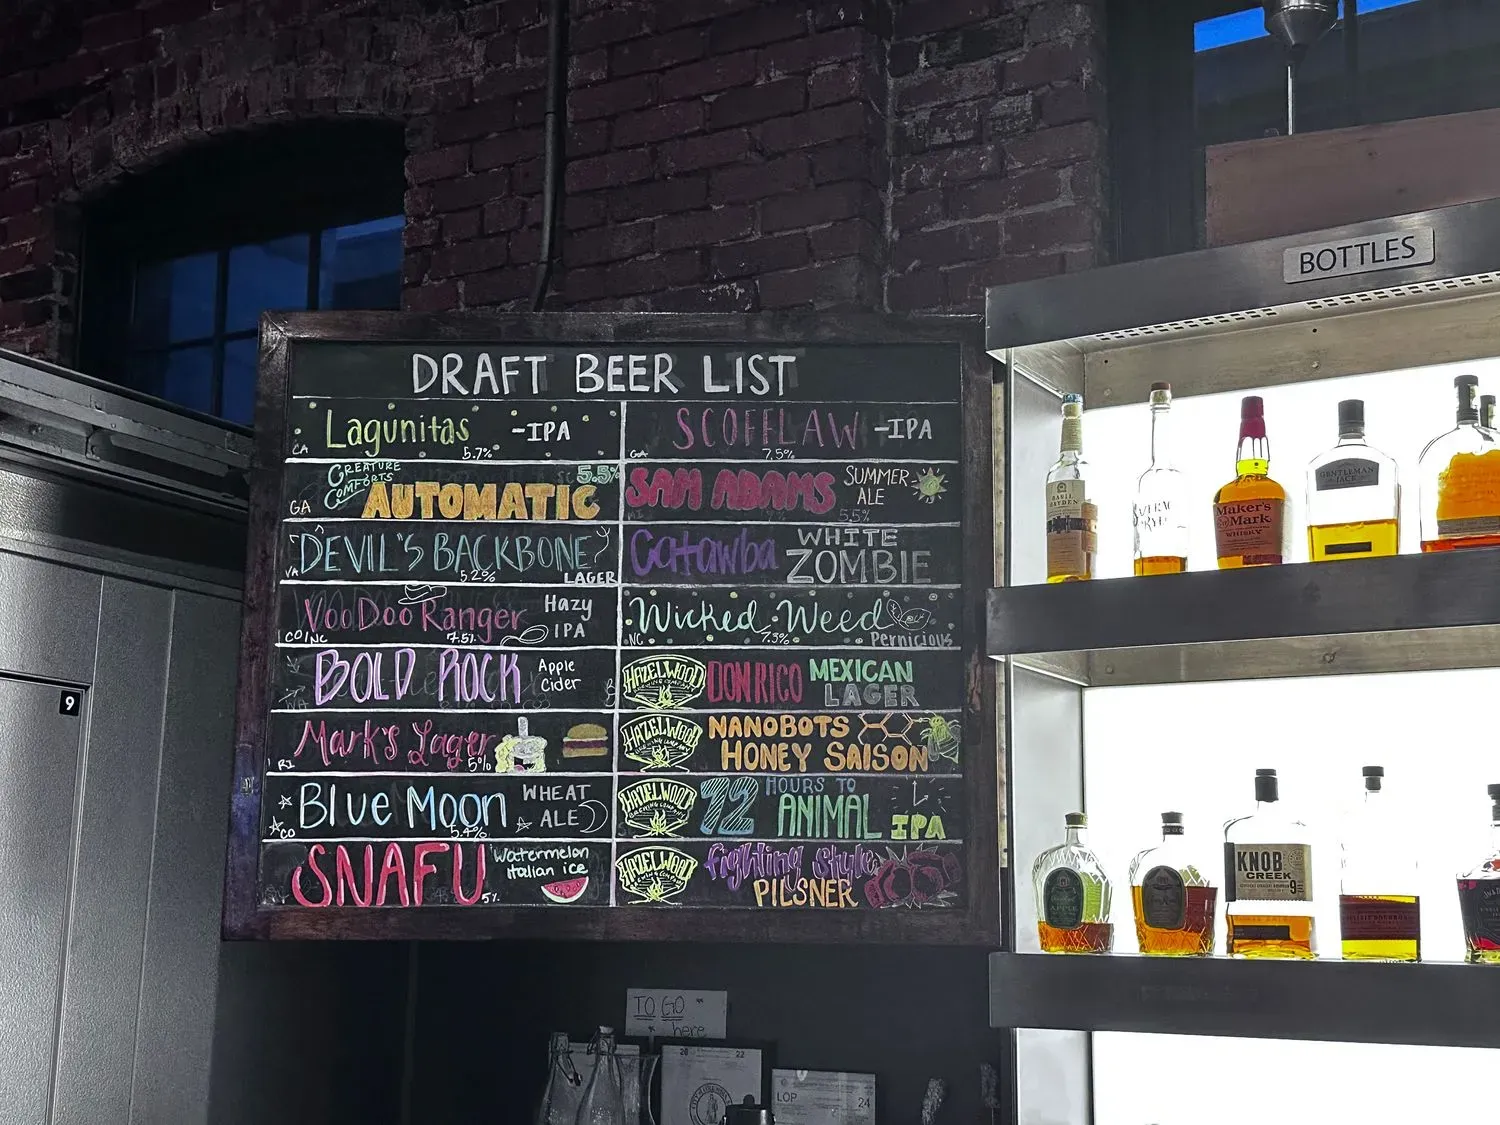 BOTTLES
DRAFT BEER LIST
Lagunitas -IPA
CA 5.7%
SCOFFLAW -IPA
GA 7.5%
CREATURE COMFORTS 5.5%
GA AUTOMATIC
SAM ADAMS SUMMER ALE
5.5%
DEVIL'S BACKBONE
VA 5.2% LAGER
Catawba WHITE ZOMBIE
VooDoo Ranger Hazy IPA
CO/NC 7.5%
Wicked Weed
NC 7.3% Pernicious
BOLD ROCK Apple Cider
VA
HAZELWOOD BREWING COMPANY DON RICO MEXICAN LAGER
Mark's Lager
RI 5%
HAZELWOOD BREWING COMPANY NANOBOTS HONEY SAISON
Blue Moon WHEAT ALE
CO 5.4%
HAZELWOOD BREWING COMPANY 72 HOURS TO ANIMAL IPA
SNAFU 5% Watermelon Italian ice
HAZELWOOD BREWING COMPANY fighting Style PILSNER
9
BASIL HAYDEN
Maker's Mark
WHISKY
GENTLEMAN JACK
APPLE
KNOB CREEK
9
TO GO
here
20 22
LOP 24